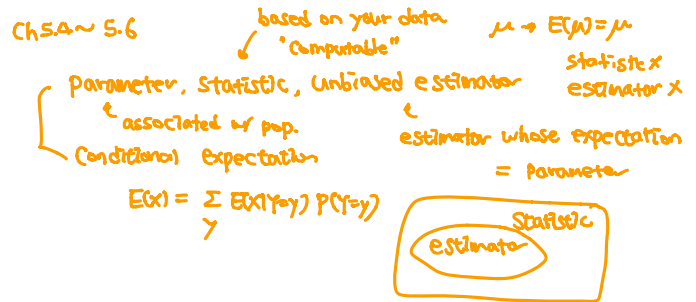 Ch5.4~ 5.6
based on your data
"Computable"
μ → E(μ) = μ
statistic x
estimator x
parameter, statistic, unbiased estimator
associated w/ pop.
estimator whose expectation
= parameter
Conditional expectation
E(X) = Σ E(X|Y=y) P(Y=y)
y
Statistic
estimator